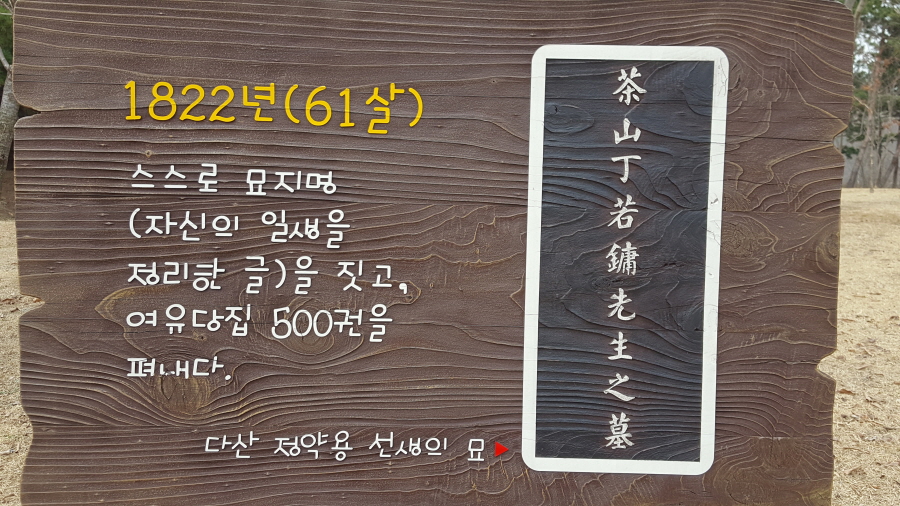 1822년(61살)
스스로 묘지명
(자신의 일생을
정리한 글)을 짓고,
여유당집 500권을
펴내다.
다산 정약용 선생의 묘
茶山丁若鏞先生之墓